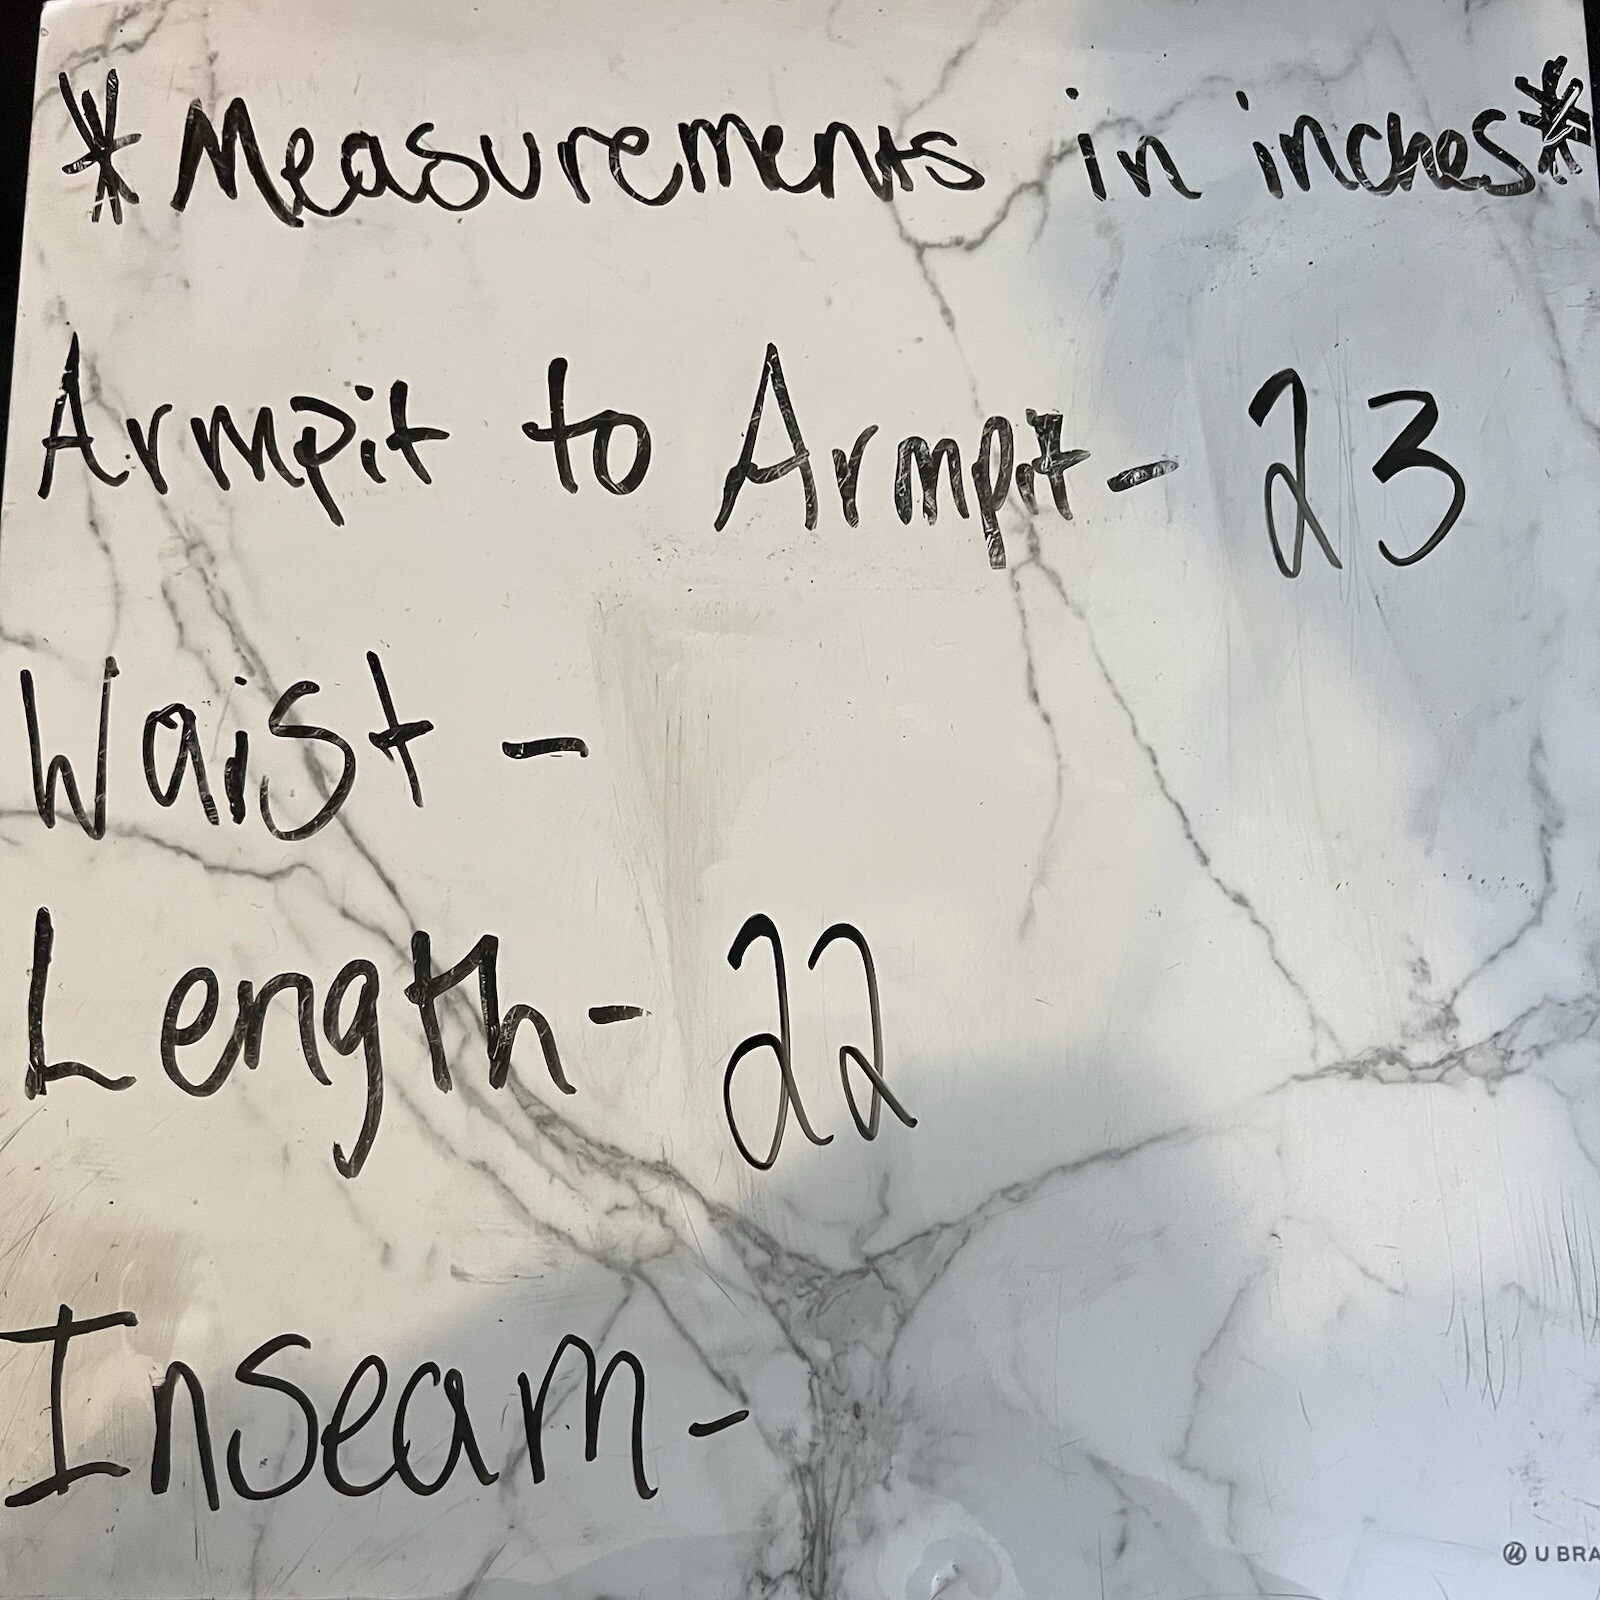 *Measurements in inches*
Armpit to Armpit - 23
Waist -
Length - 22
Inseam -
U BRA